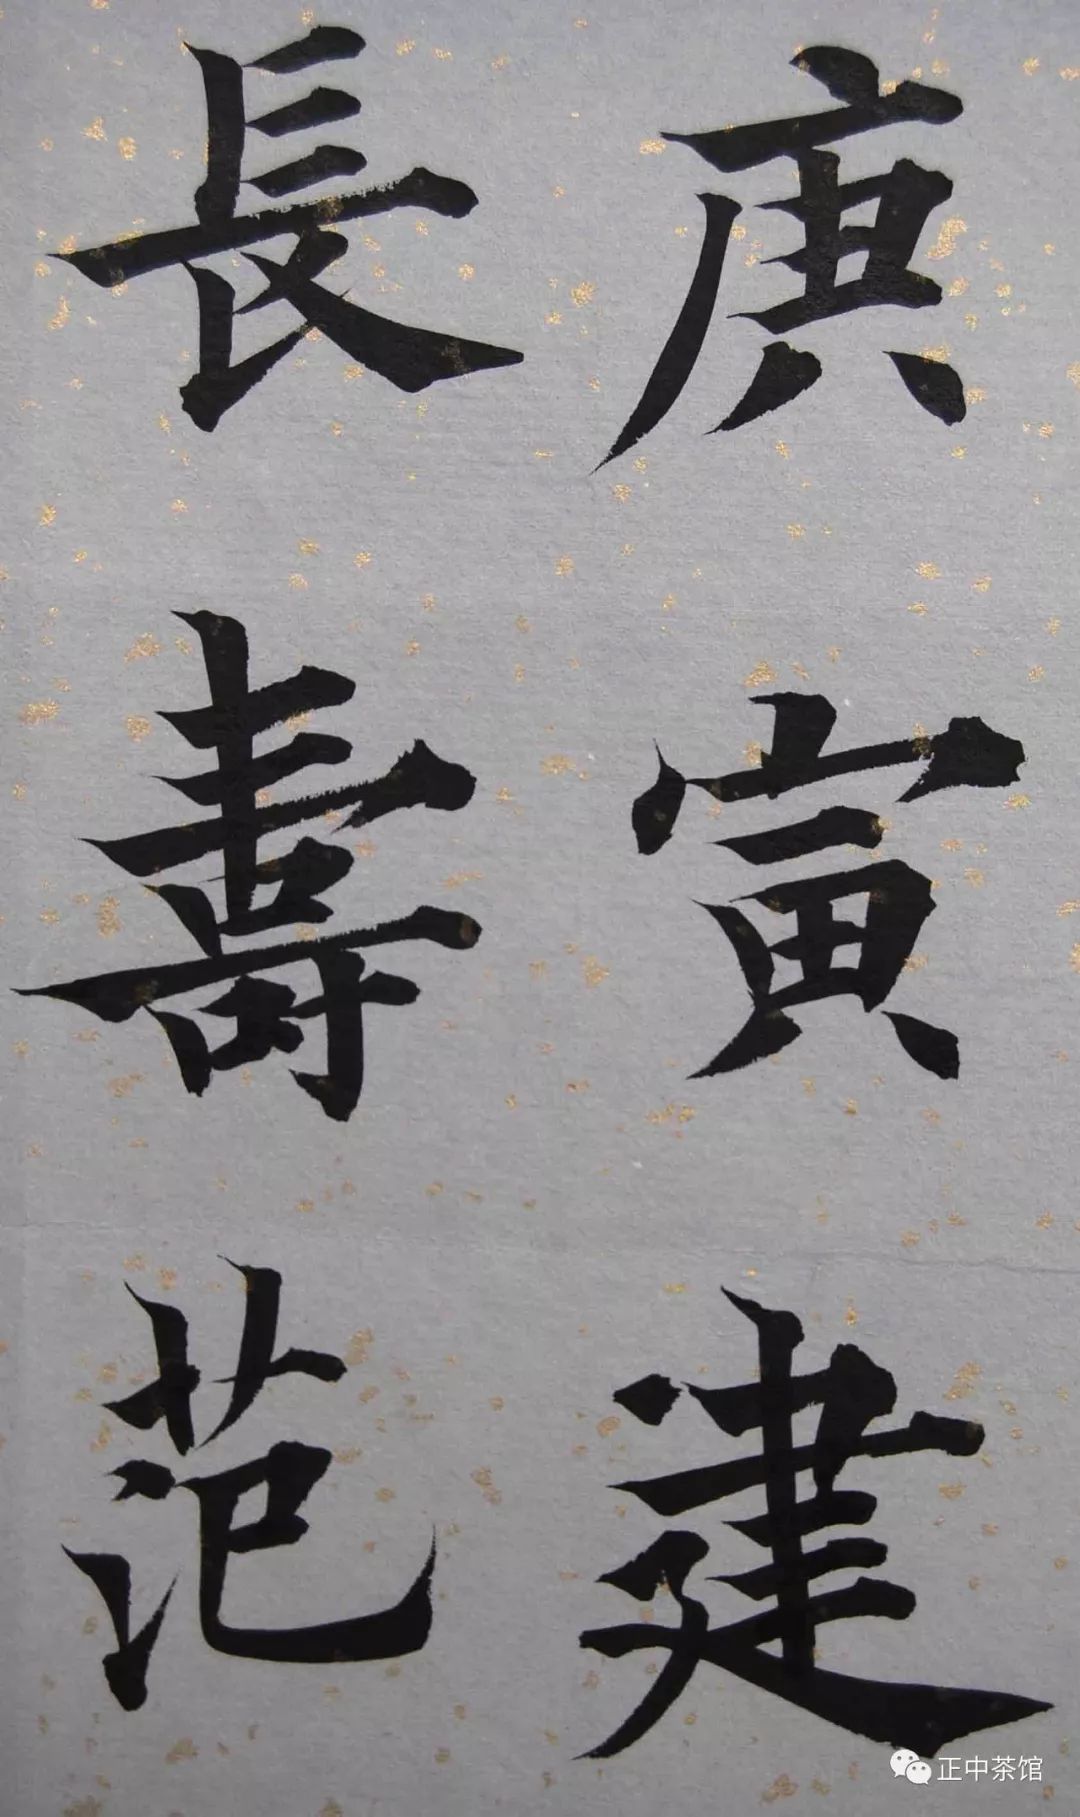 庚寅建
長壽范
正中茶馆